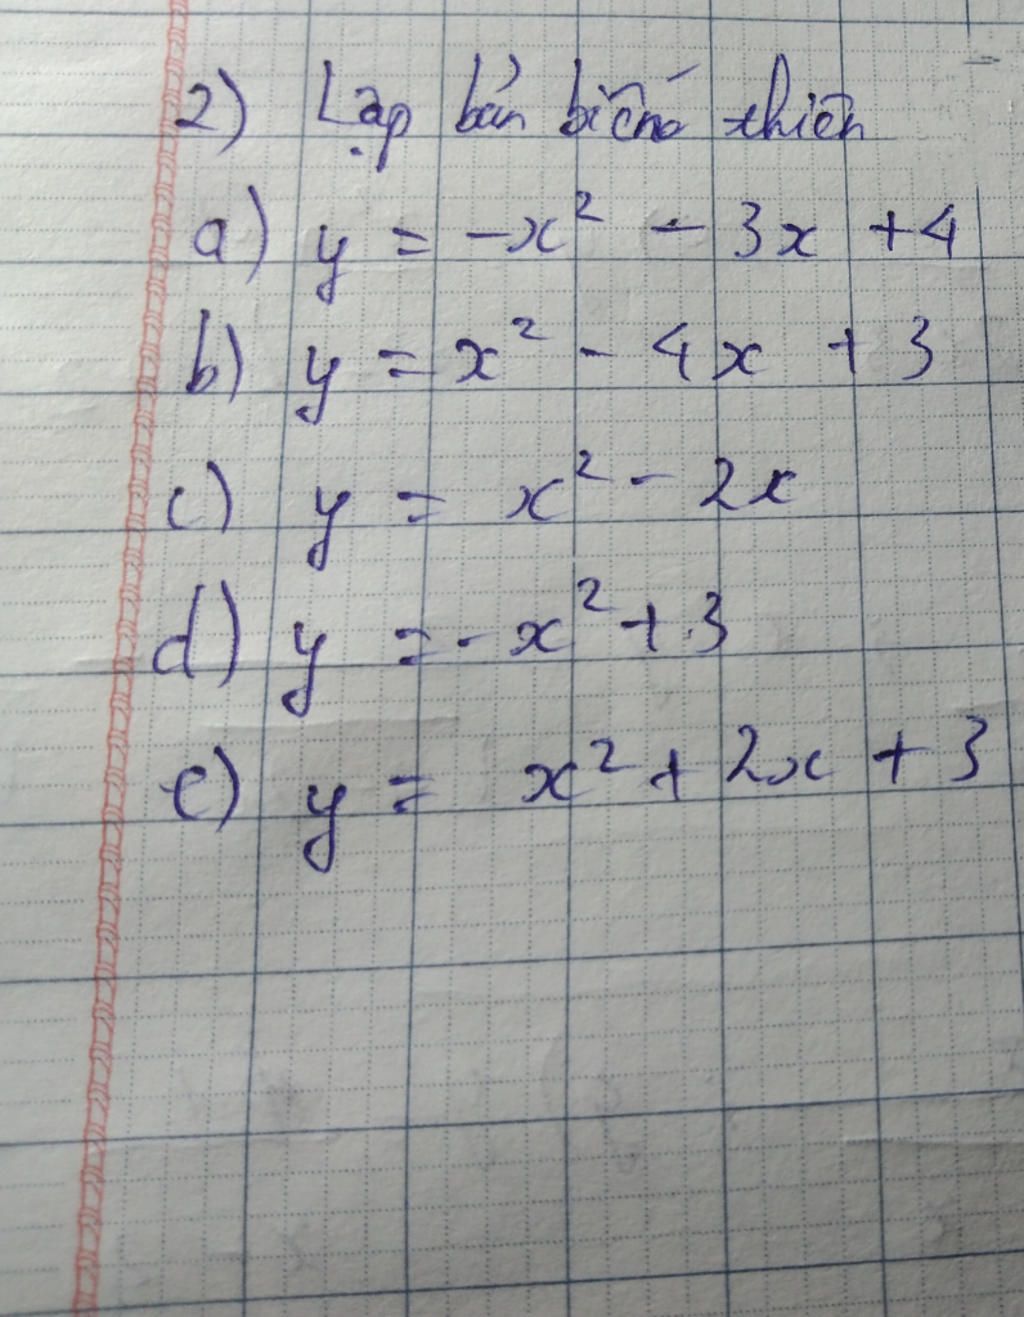 2) Lập bản biến thiên
a) y = -x² - 3x + 4
b) y = x² - 4x + 3
c) y = x² - 2x
d) y = -x² + 3
e) y = x² + 2x + 3